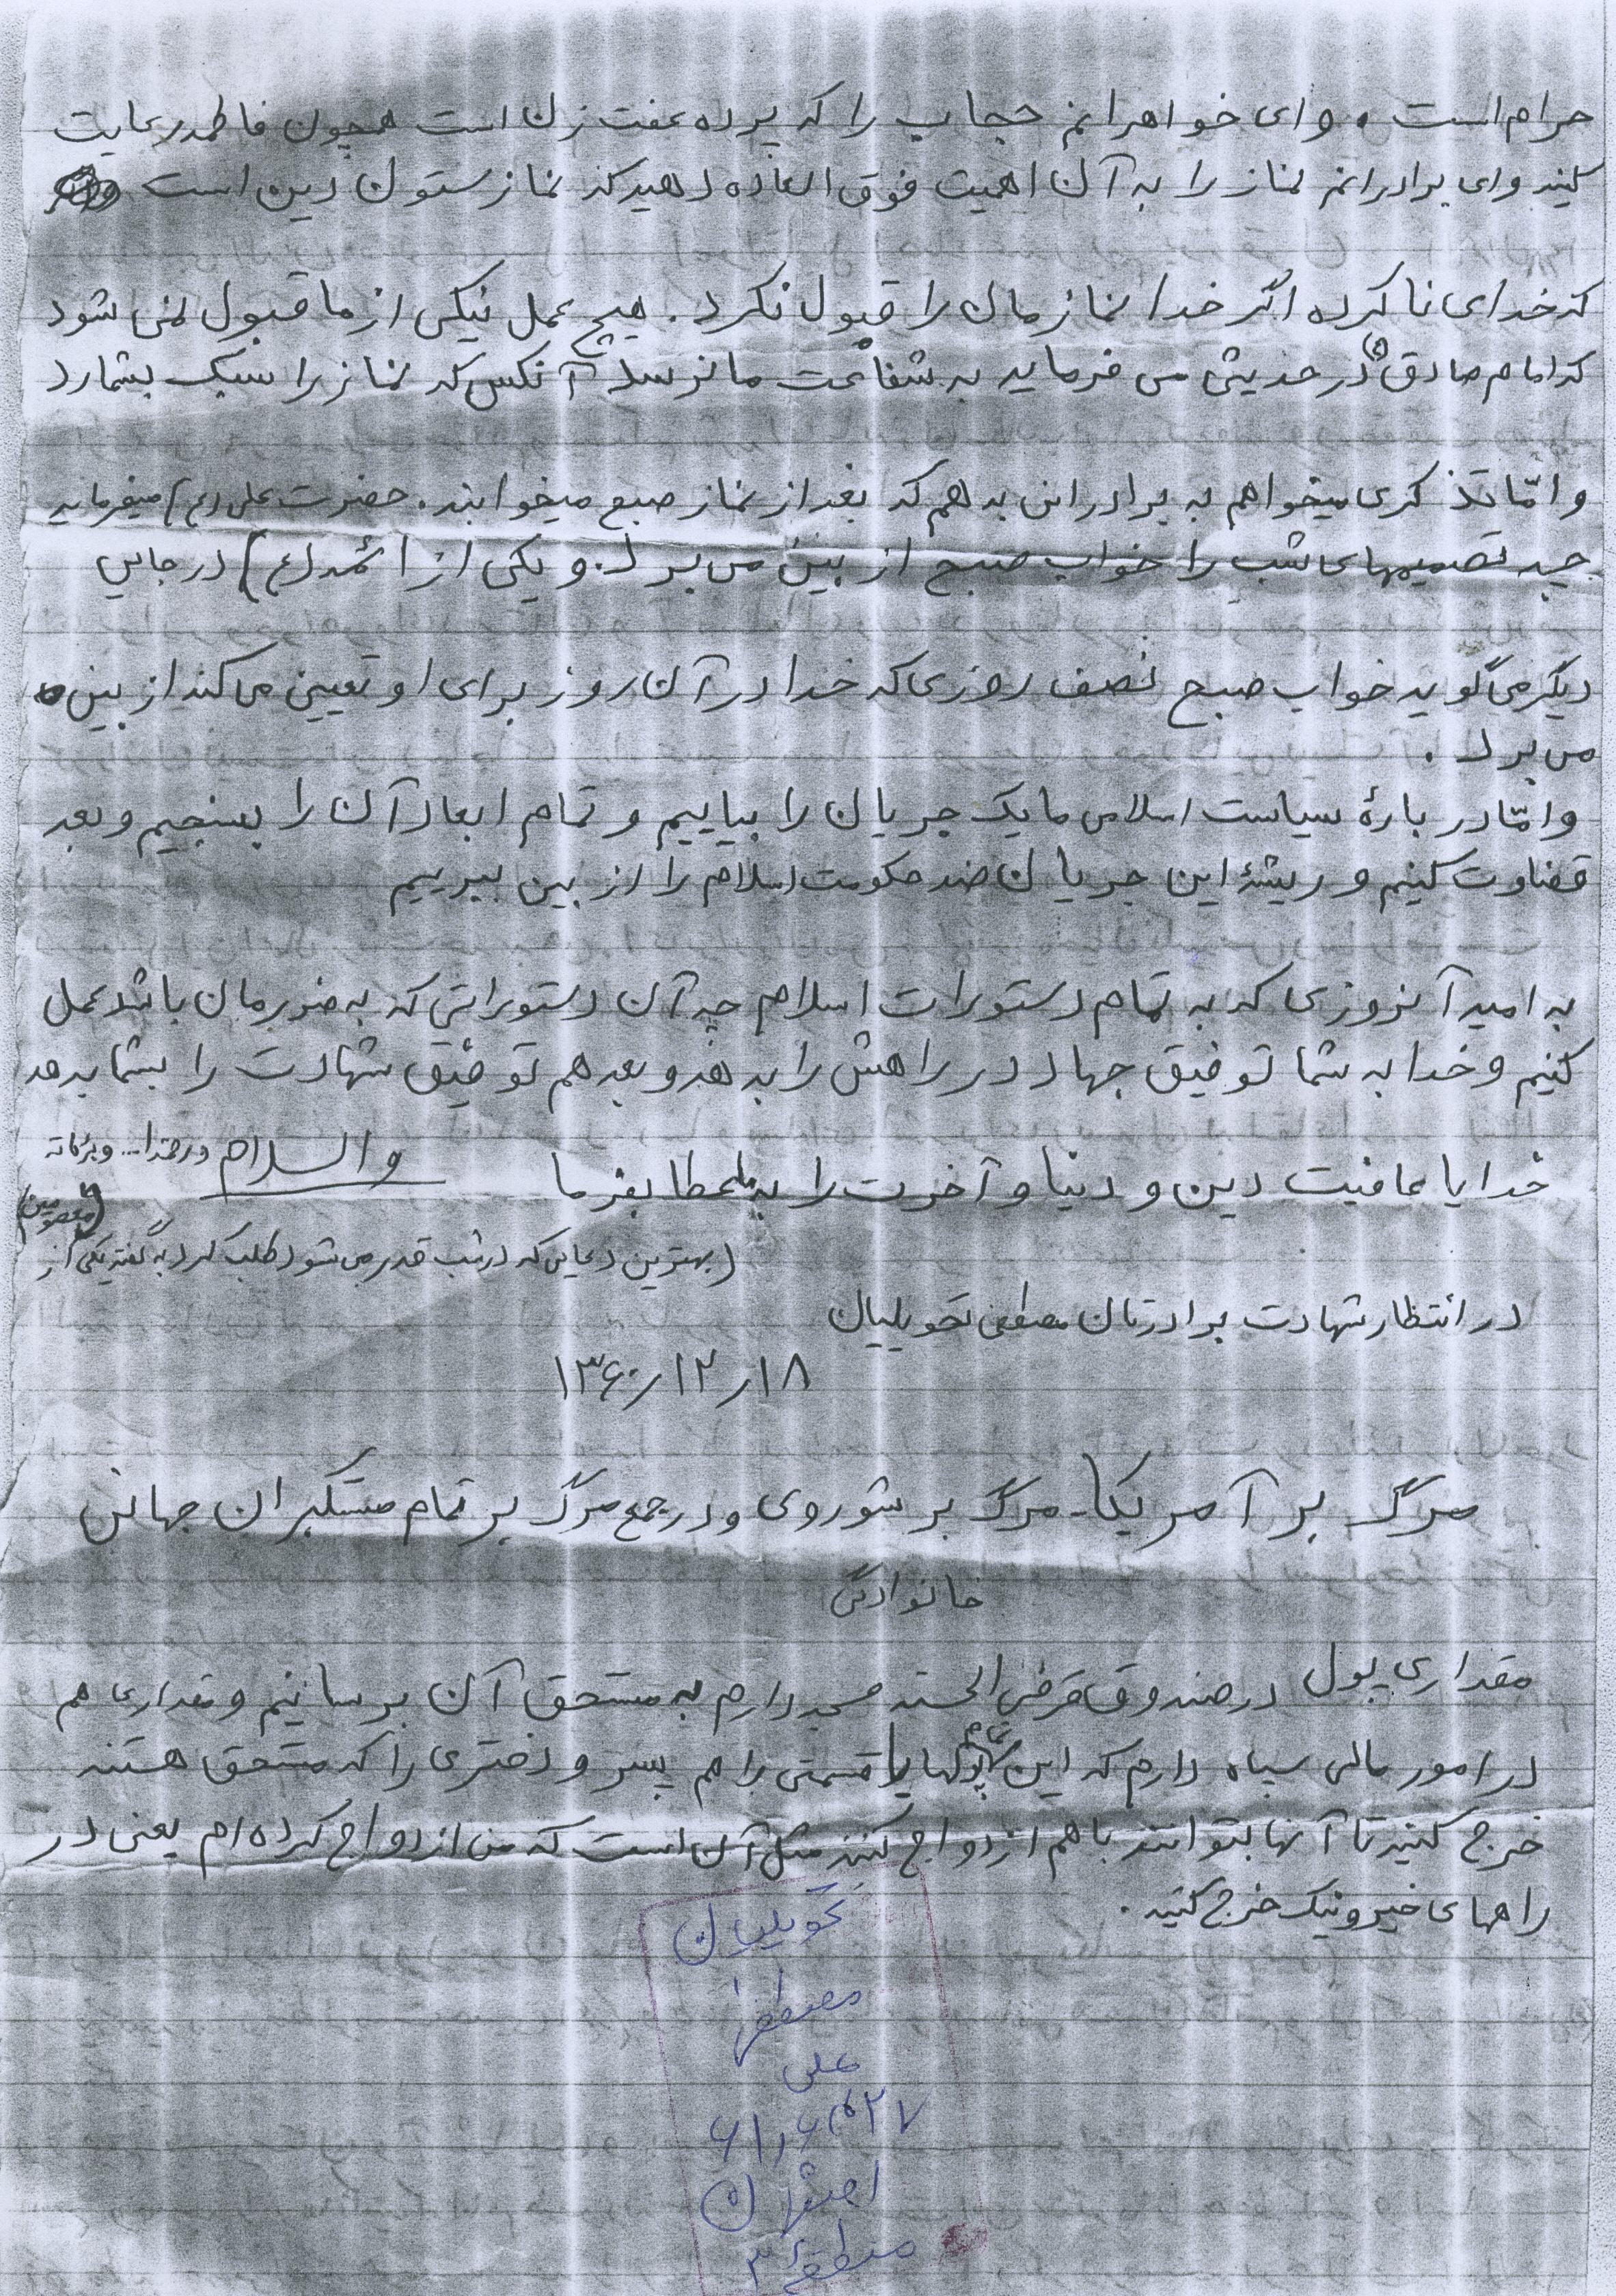 حرام است . وای خواهرانم حجاب را که پرده عفت زن است همچون فاطمه رعایت
کنید وای برادرانم نماز را به آن اهمیت فوق العاده دهید که نماز ستون دین است
که خدای ناکرده اگر خدا نمازمان را قبول نکرد . هیچ عمل نیکی از ما قبول نمی شود
که امام صادق (ع) در حدیثی می فرماید به شفاعت ما نرسد آنکس که نماز را سبک بشمارد
و امّا تذکری میخواهم به برادرانی بدهم که بعد از نماز صبح میخوابند . حضرت علی (ع) میفرماید
چه تصمیمهای شب را خواب صبح از بین می برد . و یکی از ائمه (ع) در جایی
دیگر می گوید خواب صبح نصف روزی که خدا در آن روز برای او تعیین می کند از بین
می برد .
و امّا در بارهٔ سیاست اسلامی ما یک جریان را بیاییم و تمام ابعاد آن را بسنجیم و بعد
قضاوت کنیم و ریشهٔ این جریان ضد حکومت اسلام را از بین ببریم
به امید آنروزی که به تمام دستورات اسلام چه آن دستوراتی که به ضررمان باشد عمل
کنیم و خدا به شما توفیق جهاد در راهش را بدهد و بعد هم توفیق شهادت را بشما بدهد
خدایا عافیت دین و دنیا و آخرت را به ما عطا بفرما والسلام ورحمة ا... وبرکاته
(بهترین دعایی که در شب قدر می شود طلب کرد به گفته یکی از معصومین)
در انتظار شهادت برادرتان مصطفی تحویلیان
۱۸ر۱۲ر۱۳۶۰
مرگ بر آمریکا - مرگ بر شوروی و در جمع مرگ بر تمام مستکبران جهانی
خانوادگی
مقداری پول در صندوق قرض الحسنه مسجد دارم به مستحق آن برسانیم و مقداری هم
در امور مالی سپاه دارم که این تمام پولها یا قسمتی را هم پسر و دختری را که مستحق هستند
خرج کنید تا آنها بتوانند با هم ازدواج کنند مثل آن است که من ازدواج کرده ام یعنی در
راههای خیر و نیک خرج کنید .
تحویلیان
مصطفی
علی
اصفهان
منطقه ۳